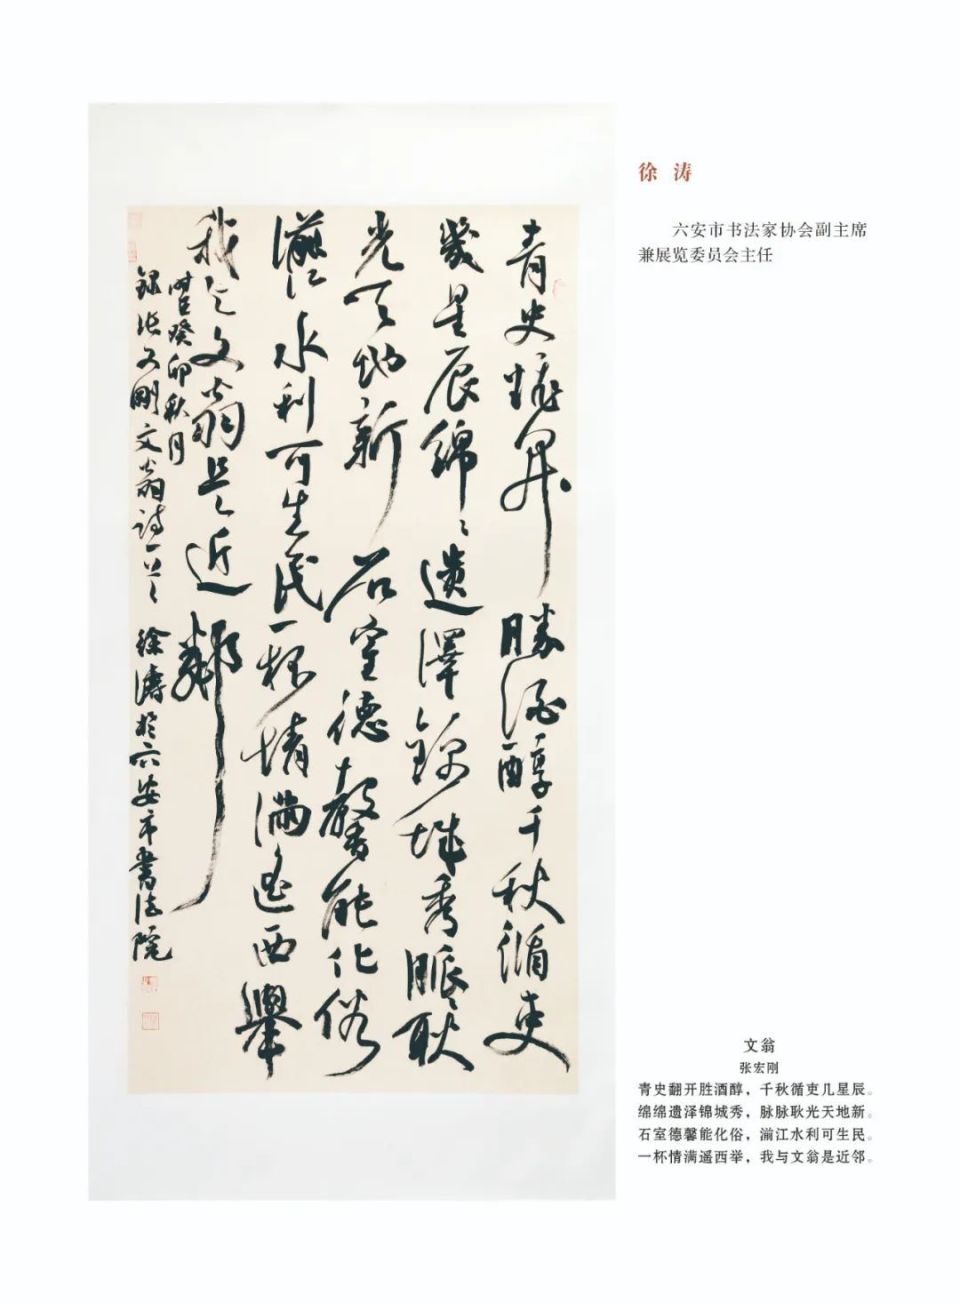 青史翻開勝酒醇千秋循吏
幾星辰綿〻遺澤錦城秀脈〻耿
光天地新石室德馨能化俗
湔江水利可生民一杯情滿遥西舉
我与文翁是近鄰
癸卯秋月
錄张宏剛文翁詩一首 徐濤於六安市書法院
徐 涛
六安市书法家协会副主席
兼展览委员会主任
文翁
张宏刚
青史翻开胜酒醇，千秋循吏几星辰。
绵绵遗泽锦城秀，脉脉耿光天地新。
石室德馨能化俗，湔江水利可生民。
一杯情满遥西举，我与文翁是近邻。